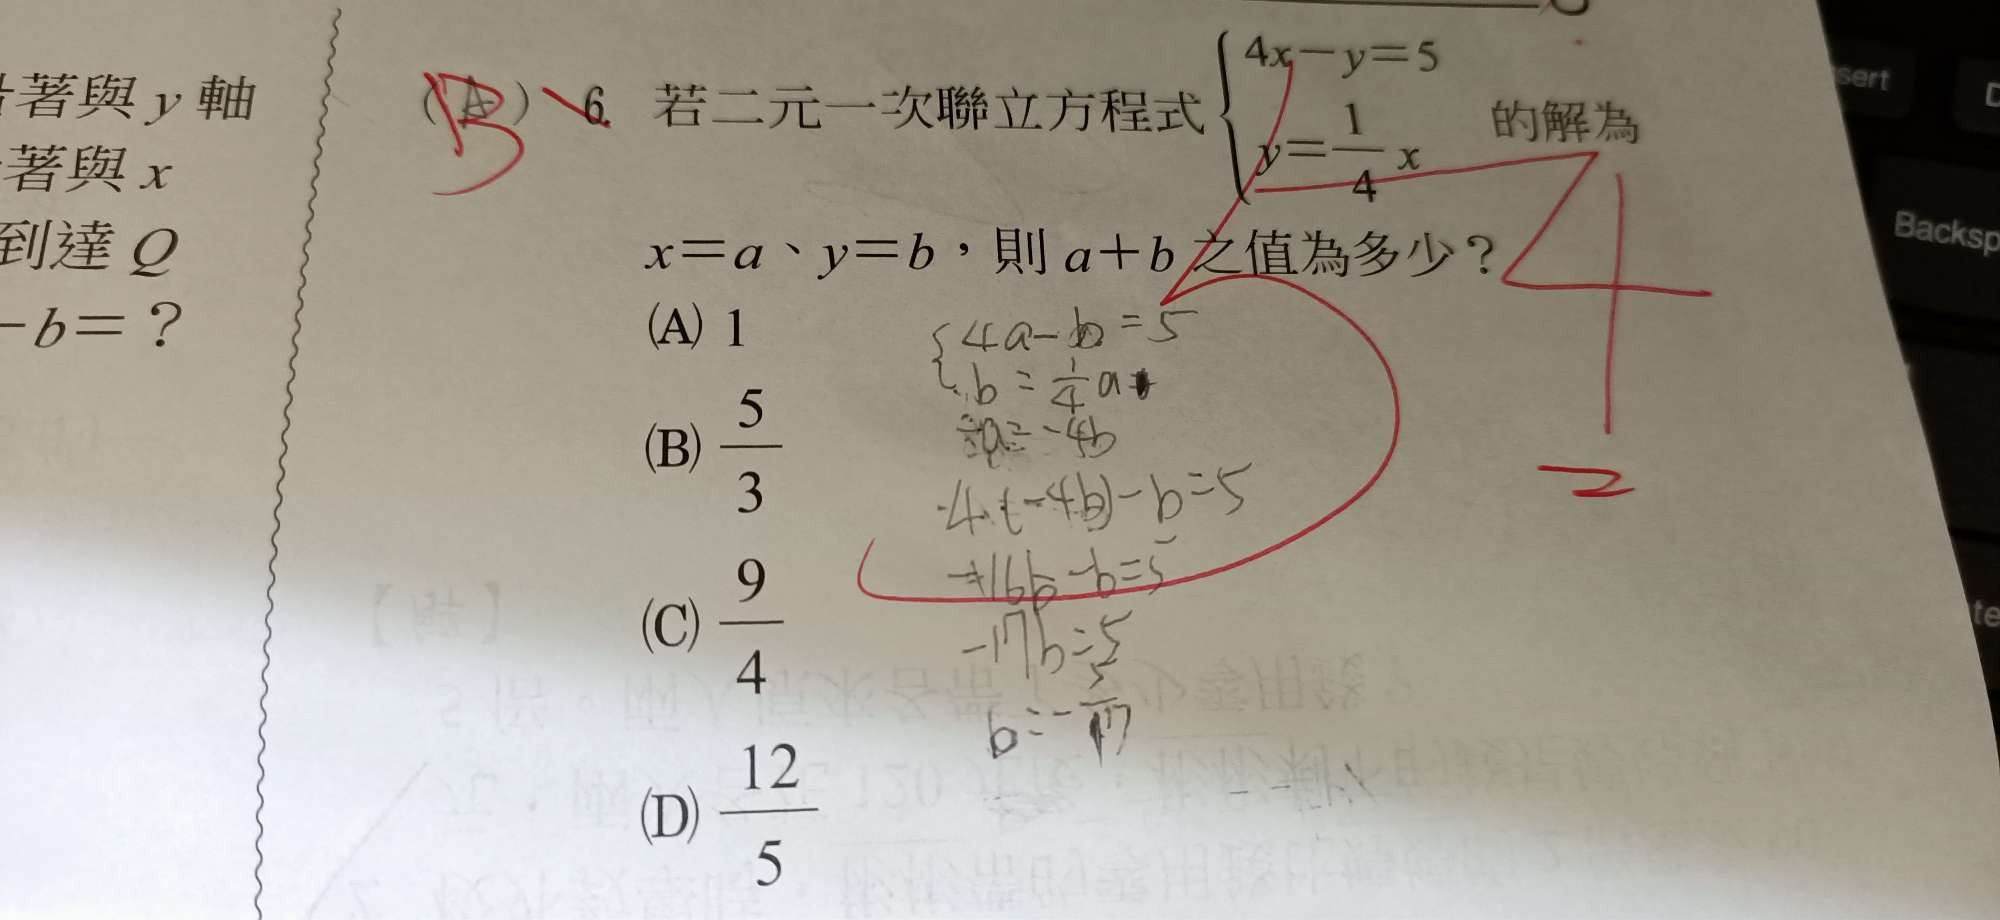 著與 y 軸
著與 x
到達 Q
－b＝？
(A) 6. 若二元一次聯立方程式 { 4x－y＝5
y＝1/4 x 的解為
x＝a、y＝b，則 a＋b 之值為多少？
(A) 1
(B) 5/3
(C) 9/4
(D) 12/5
B
4
{ 4a－b＝5
b＝1/4 a
a＝－4b
4(－4b)－b＝5
－16b－b＝5
－17b＝5
b＝－5/17
sert
Backsp